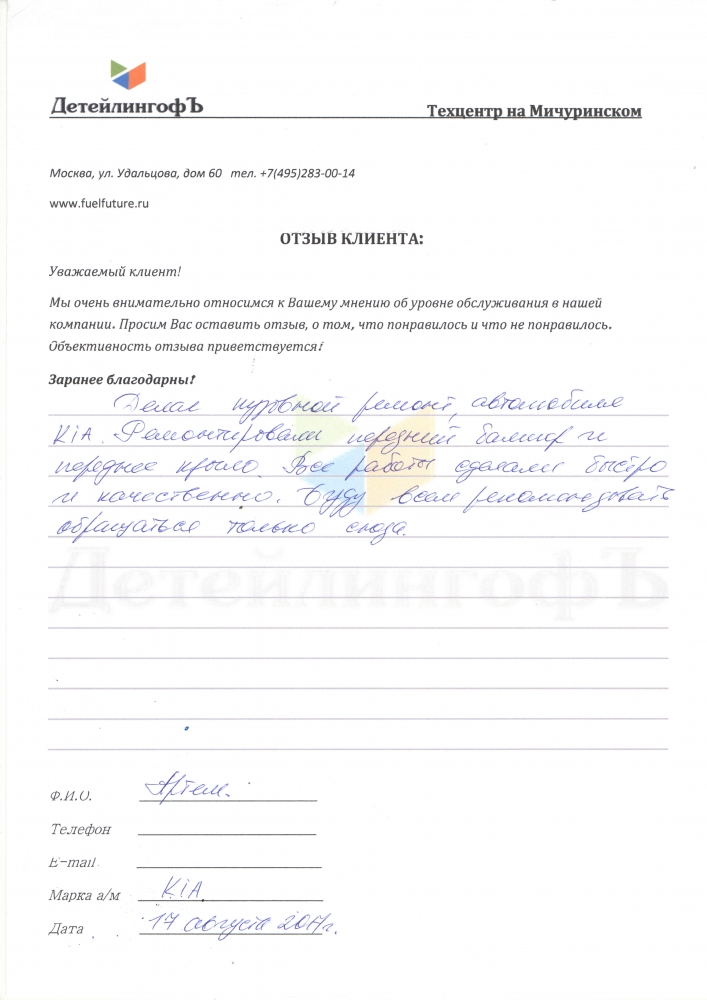 ДетейлингофЪ
Техцентр на Мичуринском
Москва, ул. Удальцова, дом 60 тел. +7(495)283-00-14
www.fuelfuture.ru
ОТЗЫВ КЛИЕНТА:
Уважаемый клиент!
Мы очень внимательно относимся к Вашему мнению об уровне обслуживания в нашей
компании. Просим Вас оставить отзыв, о том, что понравилось и что не понравилось.
Объективность отзыва приветствуется!
Заранее благодарны!
Делал кузовной ремонт, автомобиля
KiA. Ремонтировали передний бампер и
переднее крыло. Все работы сделали быстро
и качественно. Буду всем рекомендовать
обращаться только сюда.
ДетейлингофЪ
Ф.И.О. Артем.
Телефон
E-mail
Марка а/м KiA
Дата 17 августа 2017г.